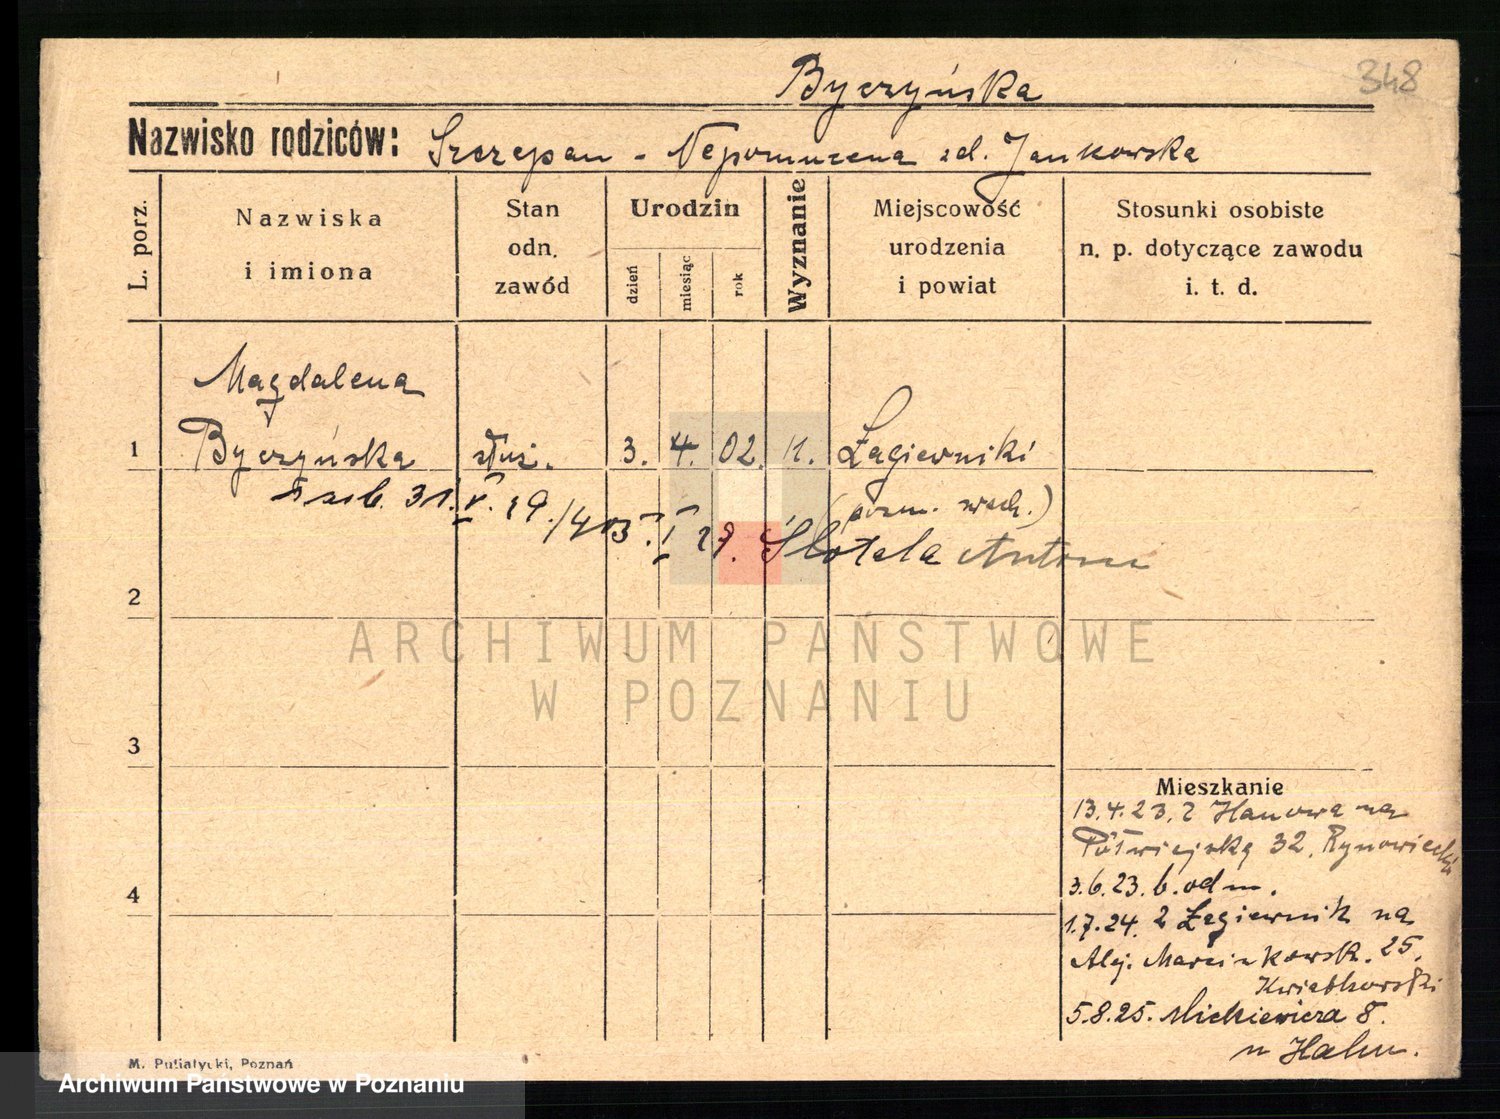 348
Byczyńska
Nazwisko rodziców: Szczepan - Nepomucena zd. Jankowska
L. porz.
Nazwiska
i imiona
Stan
odn.
zawód
Urodzin
dzień
miesiąc
rok
Wyznanie
Miejscowość
urodzenia
i powiat
Stosunki osobiste
n. p. dotyczące zawodu
i. t. d.
Magdalena
1 Byczyńska służ. 3. 4. 02. k. Łagiewniki
(pozn. wsch.)
31. V. 29. /403. I 29. Słotała Antoni
2
3
4
ARCHIWUM PAŃSTWOWE
W POZNANIU
Mieszkanie
13.4.23. z Hanowa na
Półwiejską 32. Rynowiecki
3.6.23. b. odm.
1.7.24. z Łagiewnik na
Alej. Marcinkowsk. 25.
Kwiatkowski
5.8.25. Mickiewicza 8.
u Hahn.
M. Putiatycki, Poznań
Archiwum Państwowe w Poznaniu